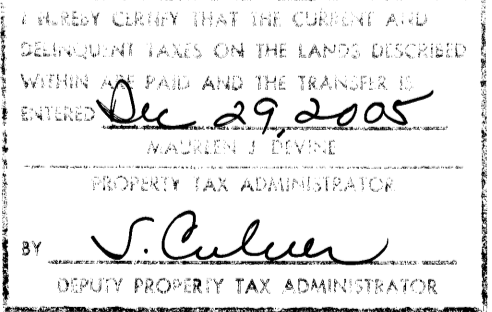 I HEREBY CERTIFY THAT THE CURRENT AND
DELINQUENT TAXES ON THE LANDS DESCRIBED
WITHIN ARE PAID AND THE TRANSFER IS
ENTERED Dec 29, 2005
MAUREEN J. DEVINE
PROPERTY TAX ADMINISTRATOR
BY S. Culver
DEPUTY PROPERTY TAX ADMINISTRATOR